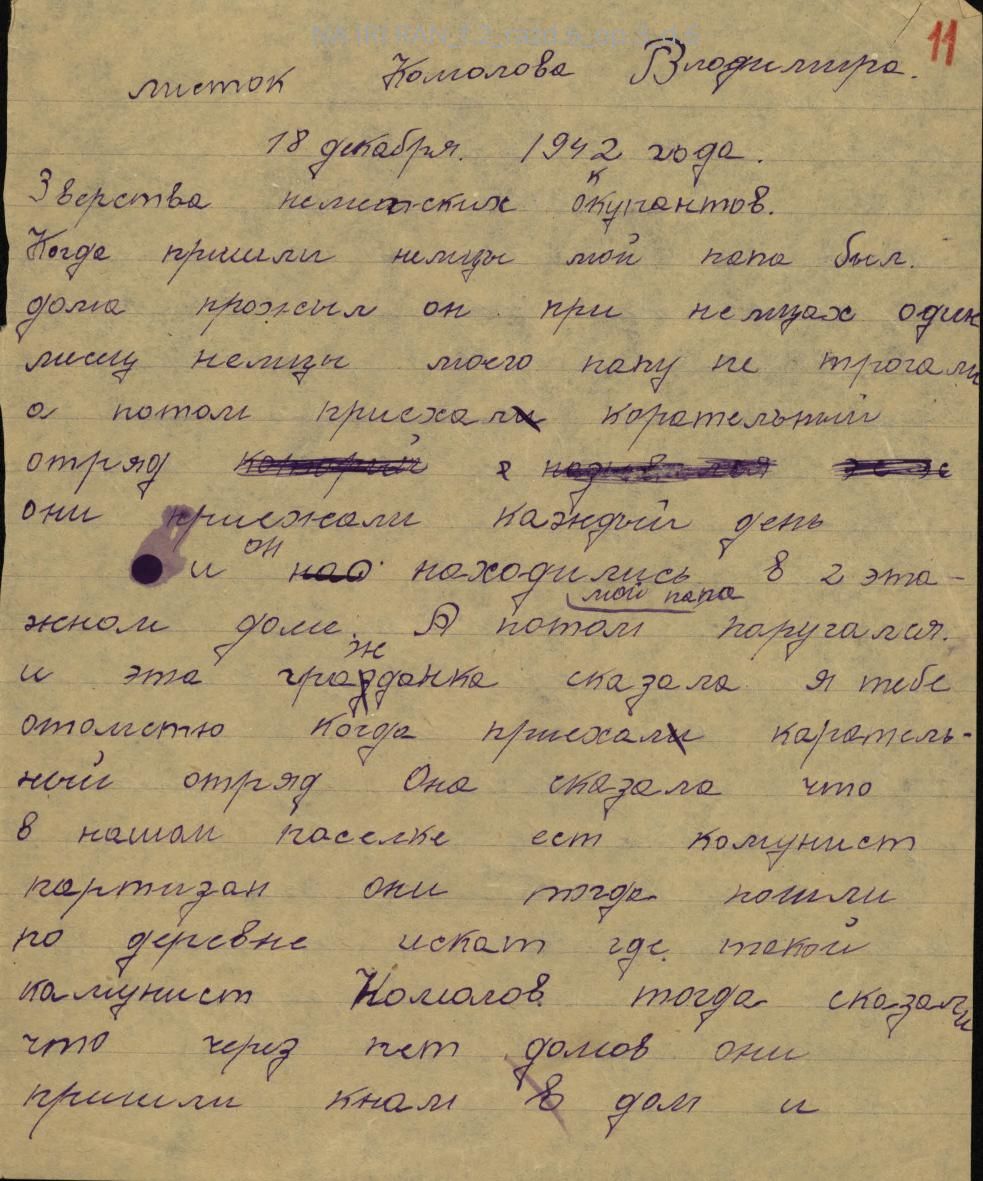 11
листок Комолова Владимира.
18 декабря. 1942 года.
Зверства неметских окупантов.
Когда пришли немцы мой папа был.
дома прожыл он при немцах один
месец немцы моего папу не трогали
а потом приехали коротельный
отряд который назывался
они приежали каждый день
и он нао находились в 2 эта-
мой папа
жном доме. А потом паругался.
и эта гражданка сказала я тебе
отомстю когда приехали каратель-
ный отряд Она сказала что
в нашом паселке ест комунист
партизан они тогда пошли
по деревне искат где такой
камунист Комолов. тогда сказали
что через пет домов они
пришли кнам в дом и